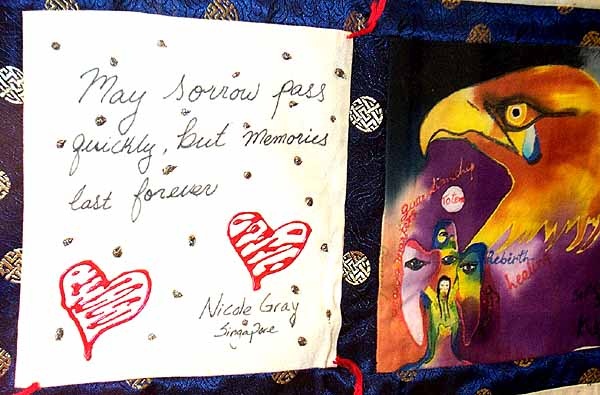 May sorrow pass
quickly, but memories
last forever
Nicole Gray
Singapore
guardianship
Totem
Rebirth
healing